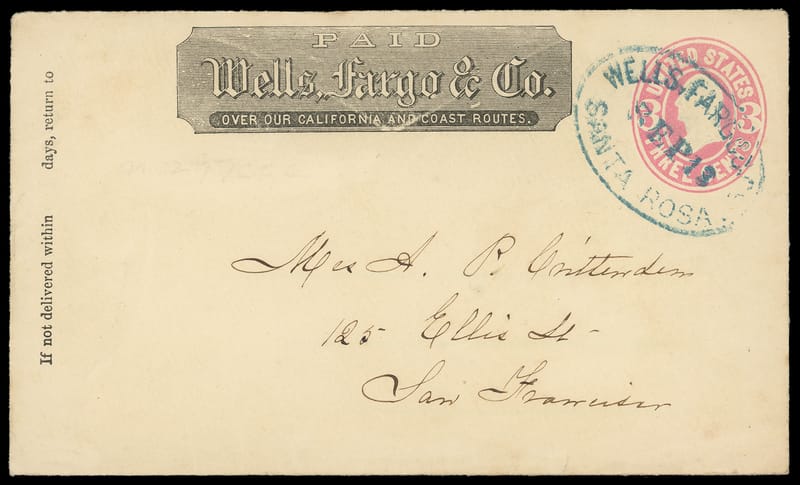 PAID
Wells, Fargo & Co.
OVER OUR CALIFORNIA AND COAST ROUTES.
If not delivered within days, return to
UNITED STATES
THREE CENTS
WELLS, FARGO &
SEP 19
SANTA ROSA
Mrs A. P. Crittenden
125 Ellis St
San Francisco